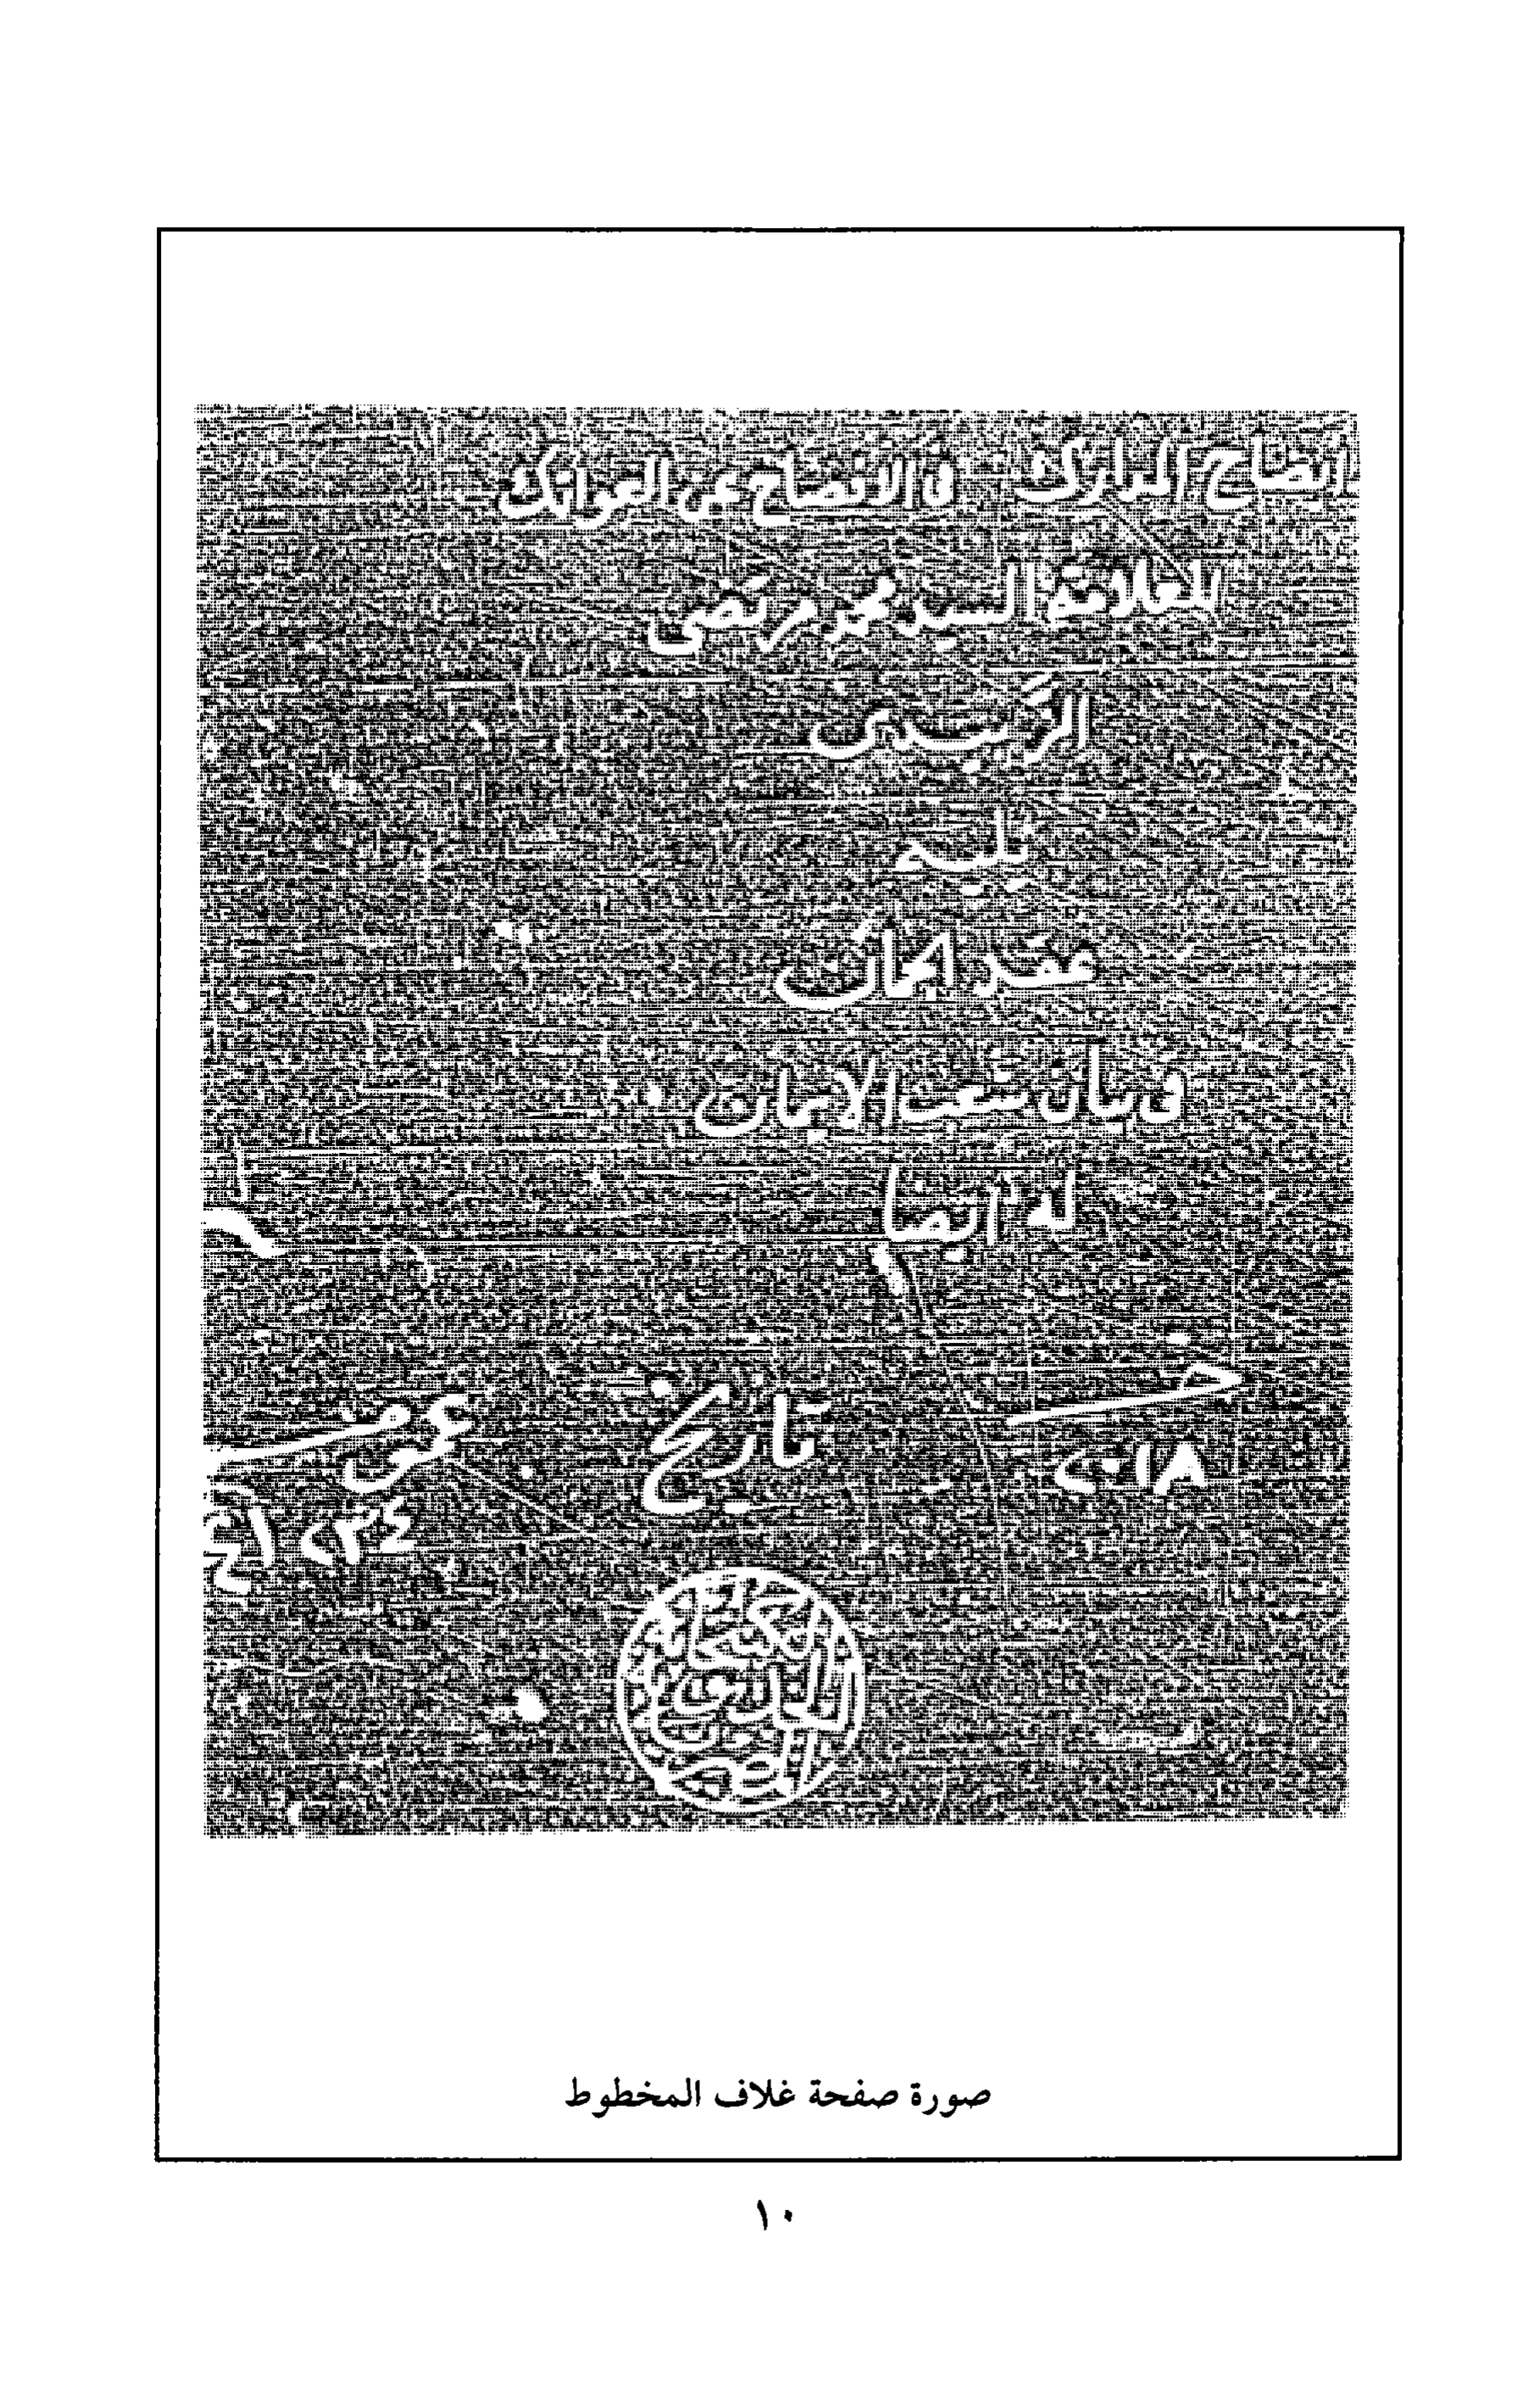 ايضاح المدارك في الافصاح عن العواتك
للعلامة السيد محمد مرتضى
الزبيدى
يليه
عقد الجمان
في بيان شعب الايمان
له ايضا
تاريخ
٢٠١٨
٢٣٤
الكتبخانة
المصرية
صورة صفحة غلاف المخطوط
١٠